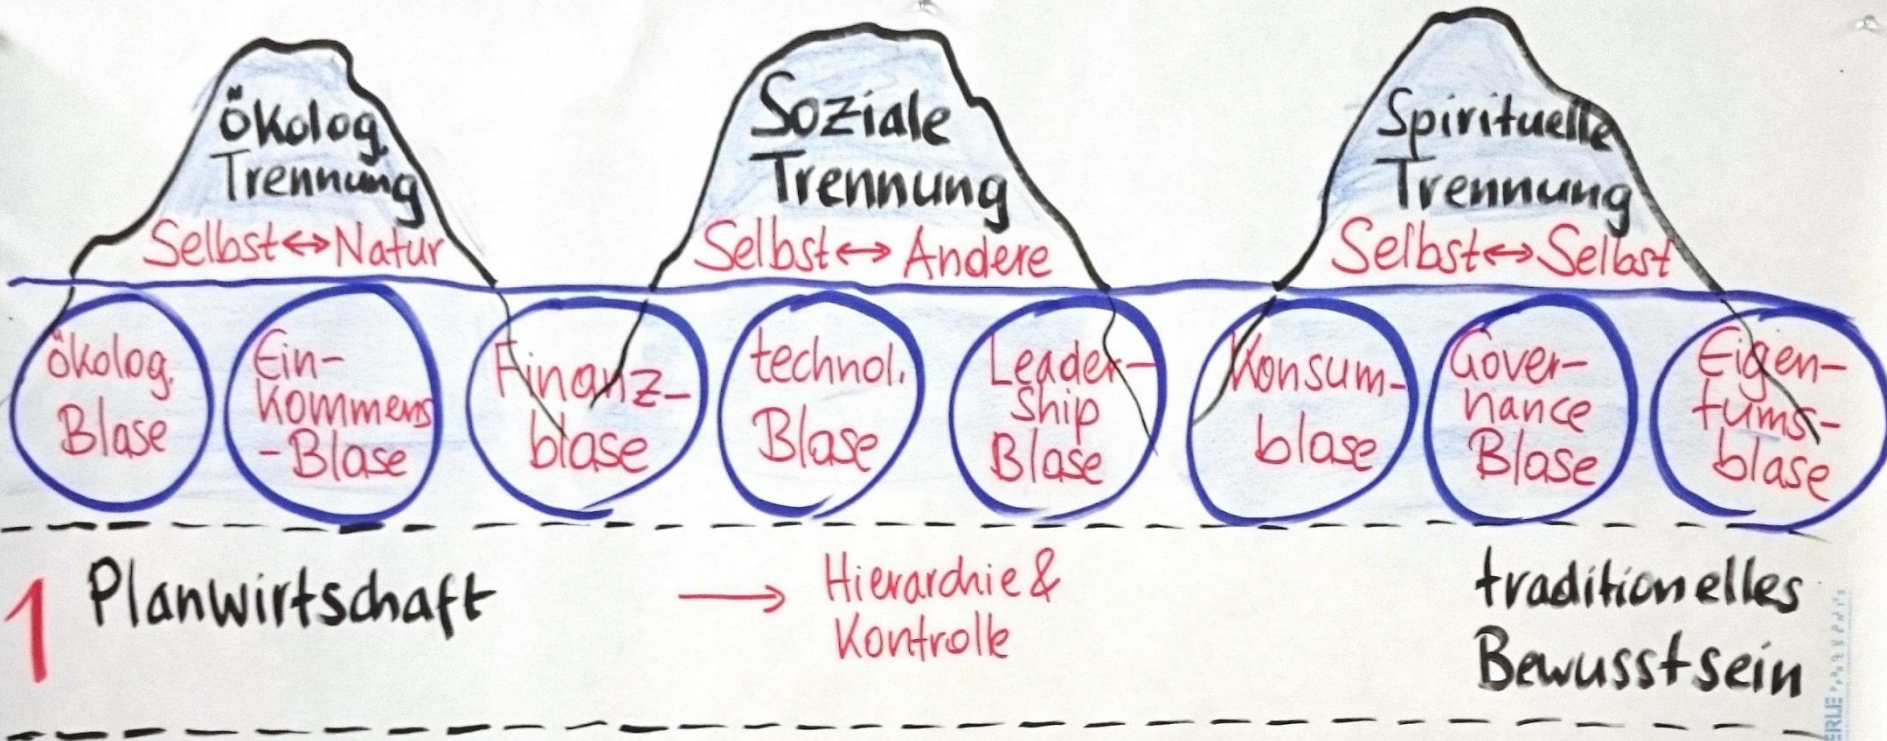 Ökolog.
Trennung
Selbst↔Natur
Soziale
Trennung
Selbst↔Andere
Spirituelle
Trennung
Selbst↔Selbst
ökolog.
Blase
Ein-
kommens
-Blase
Finanz-
blase
technol.
Blase
Leader-
ship
Blase
Konsum-
blase
Gover-
nance
Blase
Eigen-
tums-
blase
1 Planwirtschaft
→ Hierarchie &
Kontrolle
traditionelles
Bewusstsein